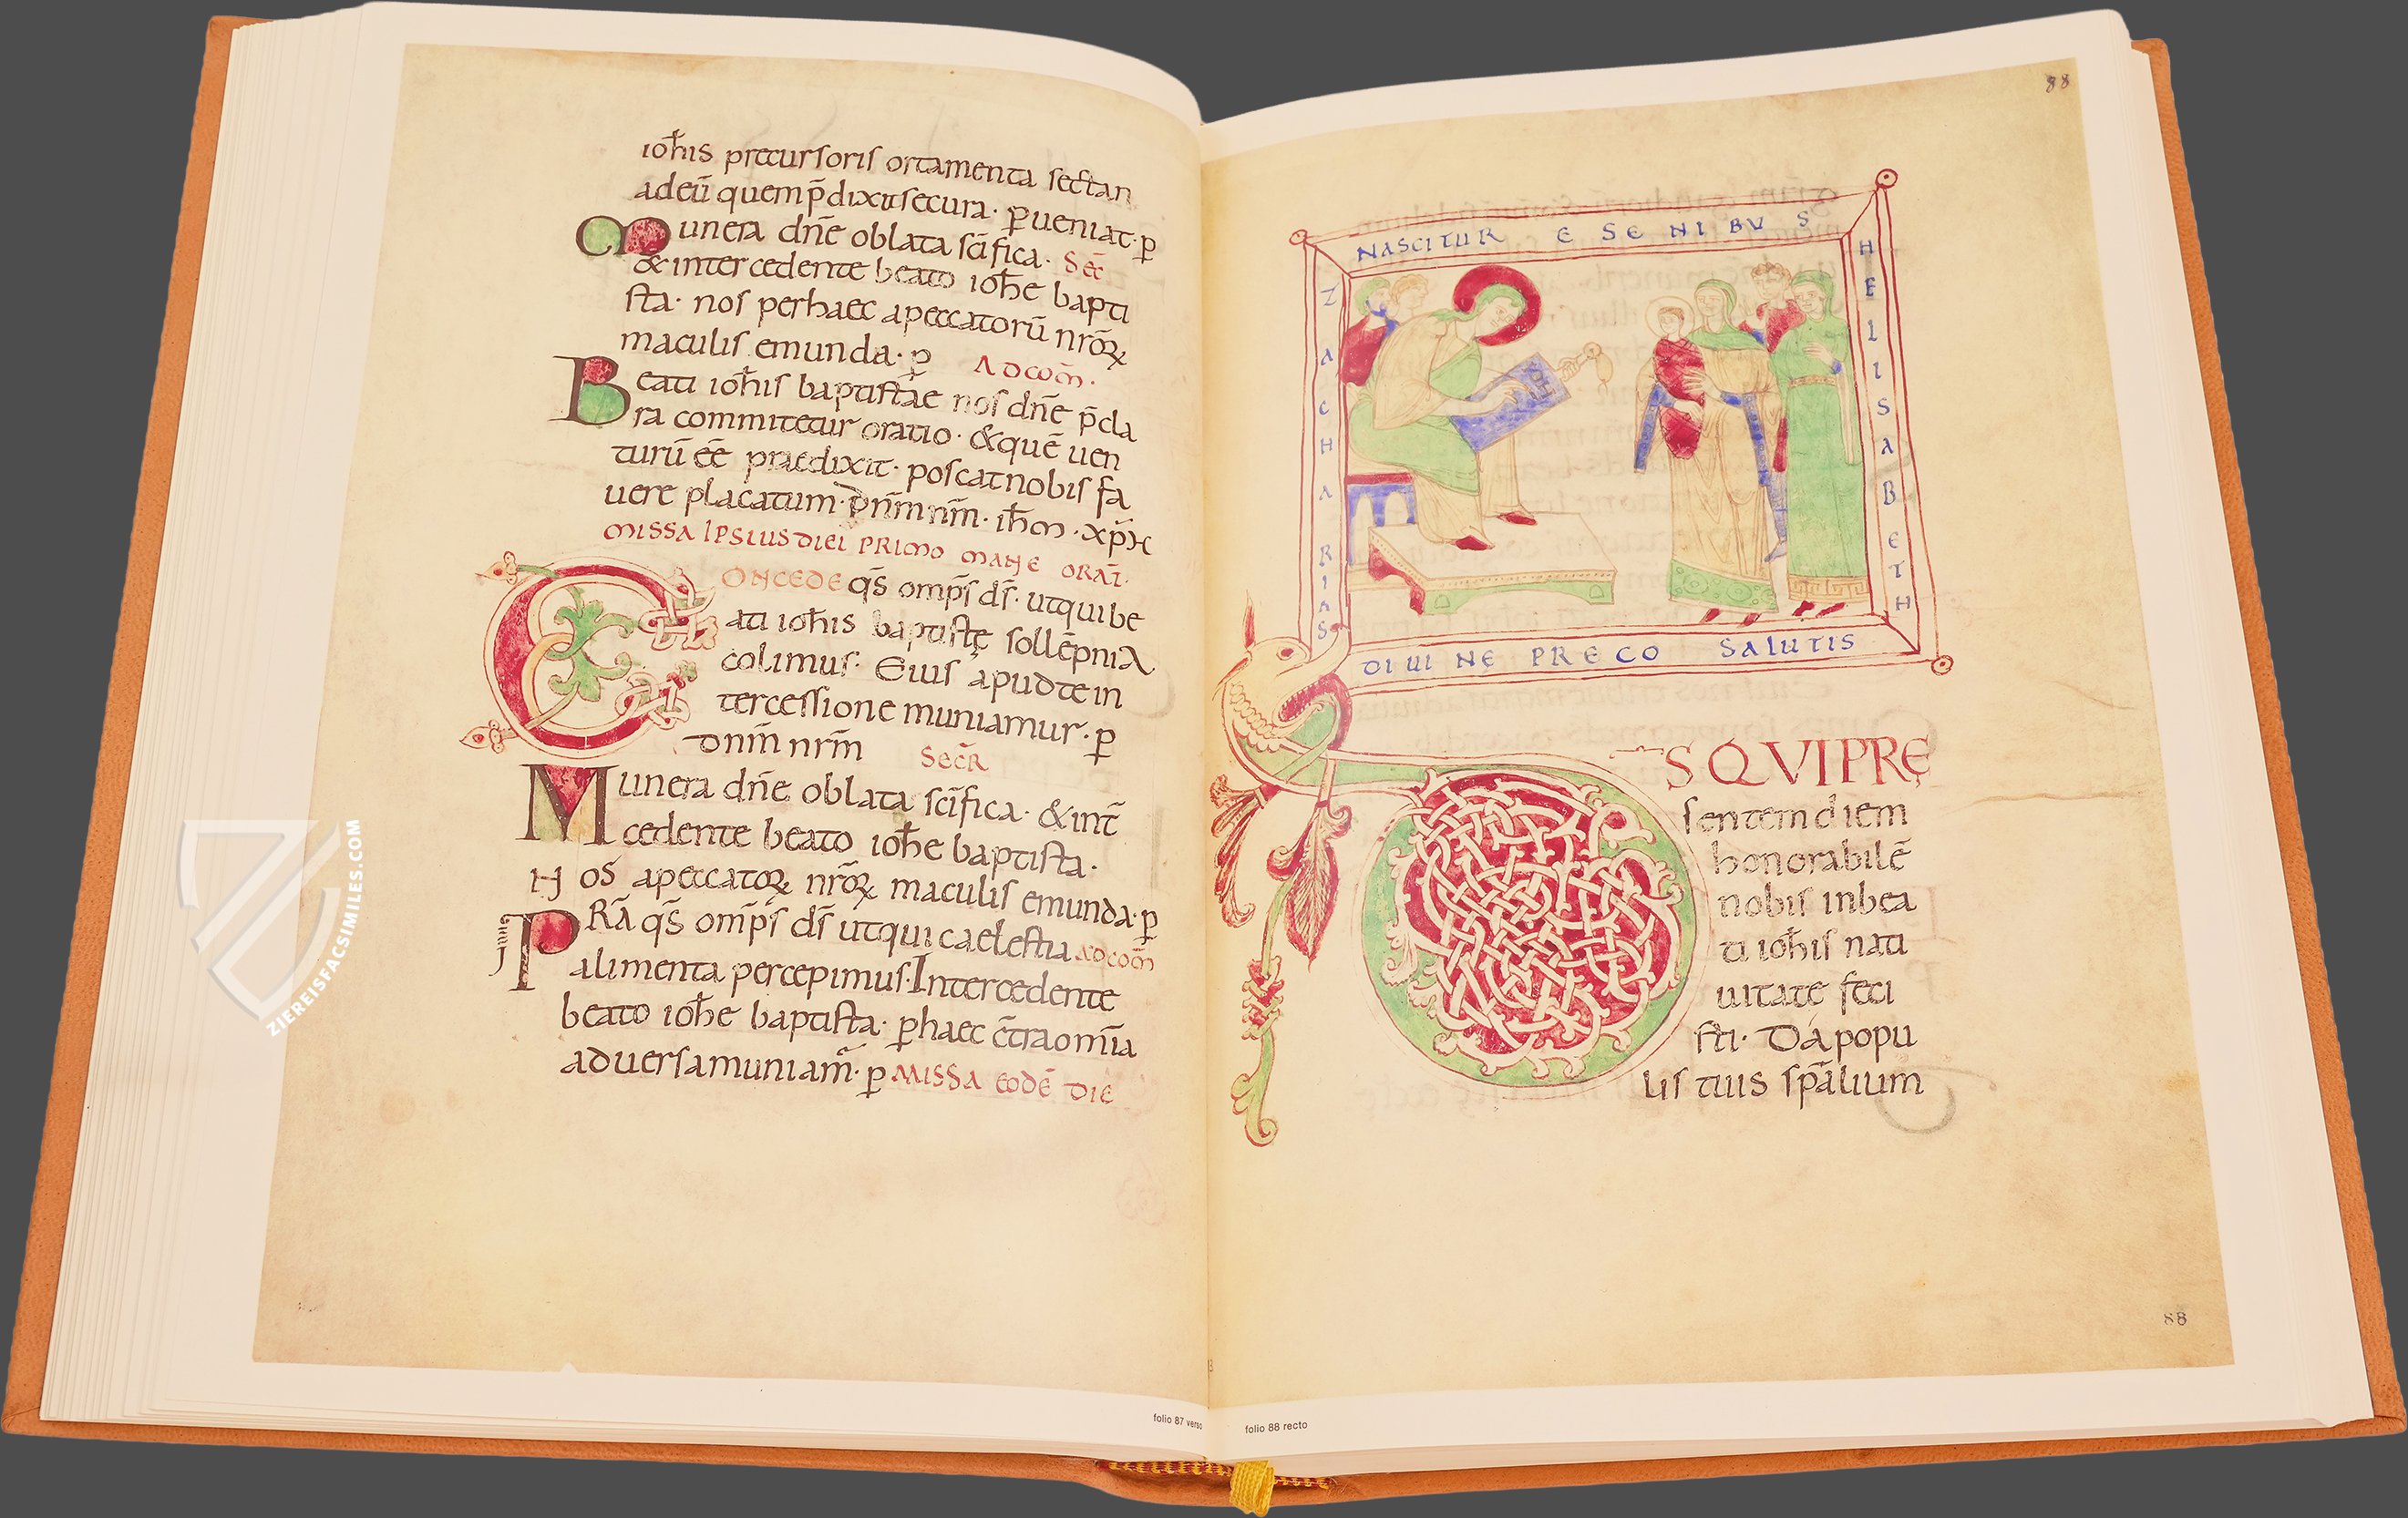 ioh̄is precursoris ortamenta sectan
adeū quem p̄dixit secura· ꝑueniat· ꝑ
Munera dn̄e oblata sc̄ifica· Sec̄
& intercedente beato ioh̄e bapti
sta· nos perhaec apeccatorū nr̄oꝝ
maculis emunda· ꝑ ADCOM̄·
Beati ioh̄is baptistae nos dn̄e p̄cla
ra commitetur oratio· & quē uen
turū eē praedixit· poscat nobis fa
uere placatum· dn̄m nr̄m· ih̄m · xp̄m
MISSA IPSIUS DIEI PRIMO MANE ORAT̄·
CONCEDE qs̄ omp̄s ds̄· ut qui be
ati ioh̄is baptistę sollēpnia
colimus· Eius apud te in
tercessione muniamur· ꝑ
dnm̄ nrm̄ SECR̄
Munera dn̄e oblata sc̄ifica· & int̄
cedente beato ioh̄e baptista·
Nos apeccatoꝝ nr̄oꝝ maculis emunda· ꝑ
PRĀ qs̄ omp̄s ds̄ ut qui caelestia ADCOM̄
alimenta percepimus· Intercedente
beato ioh̄e baptista· ꝑhaec c̄tra om̄ia
aduersa muniam̄· ꝑ MISSA EODĒ DIE
folio 87 verso
88
NASCITUR E SENIBUS
ZACHARIAS
HELISABETH
DIUINĘ PRECO SALUTIS
DS QVI PRĘ
sentem diem
honorabilē
nobis in bea
ti ioh̄is nati
uitatę feci
sti· Dá popu
lis tuis sp̄alium
88
folio 88 recto
ZIEREISFACSIMILES.COM